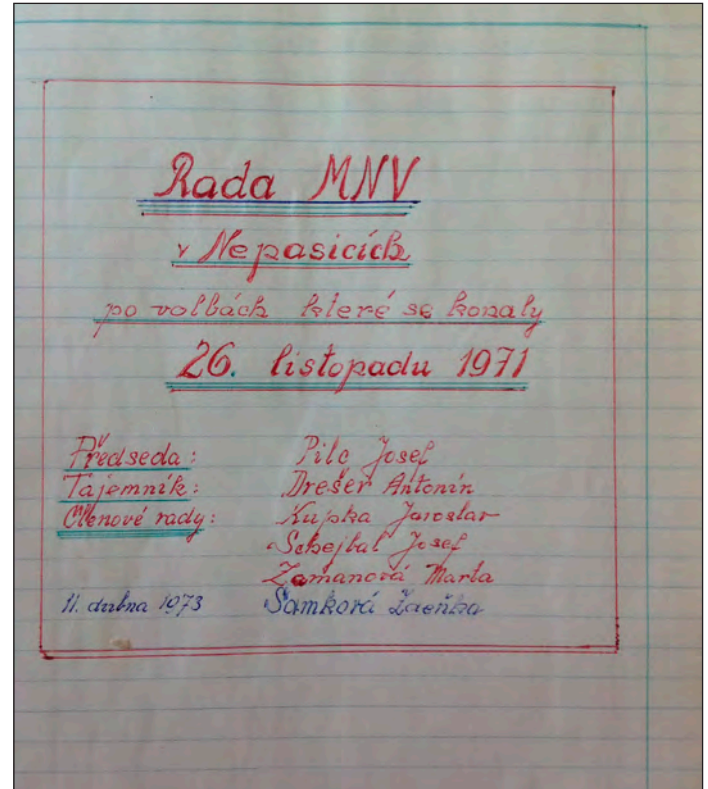 Rada MNV
v Nepasicích
po volbách které se konaly
26. listopadu 1971
Předseda: Pilc Josef
Tajemník: Drešer Antonín
Členové rady: Kupka Jaroslav
Schejbal Josef
Zamanová Marta
11. dubna 1973 Samková Zdeňka